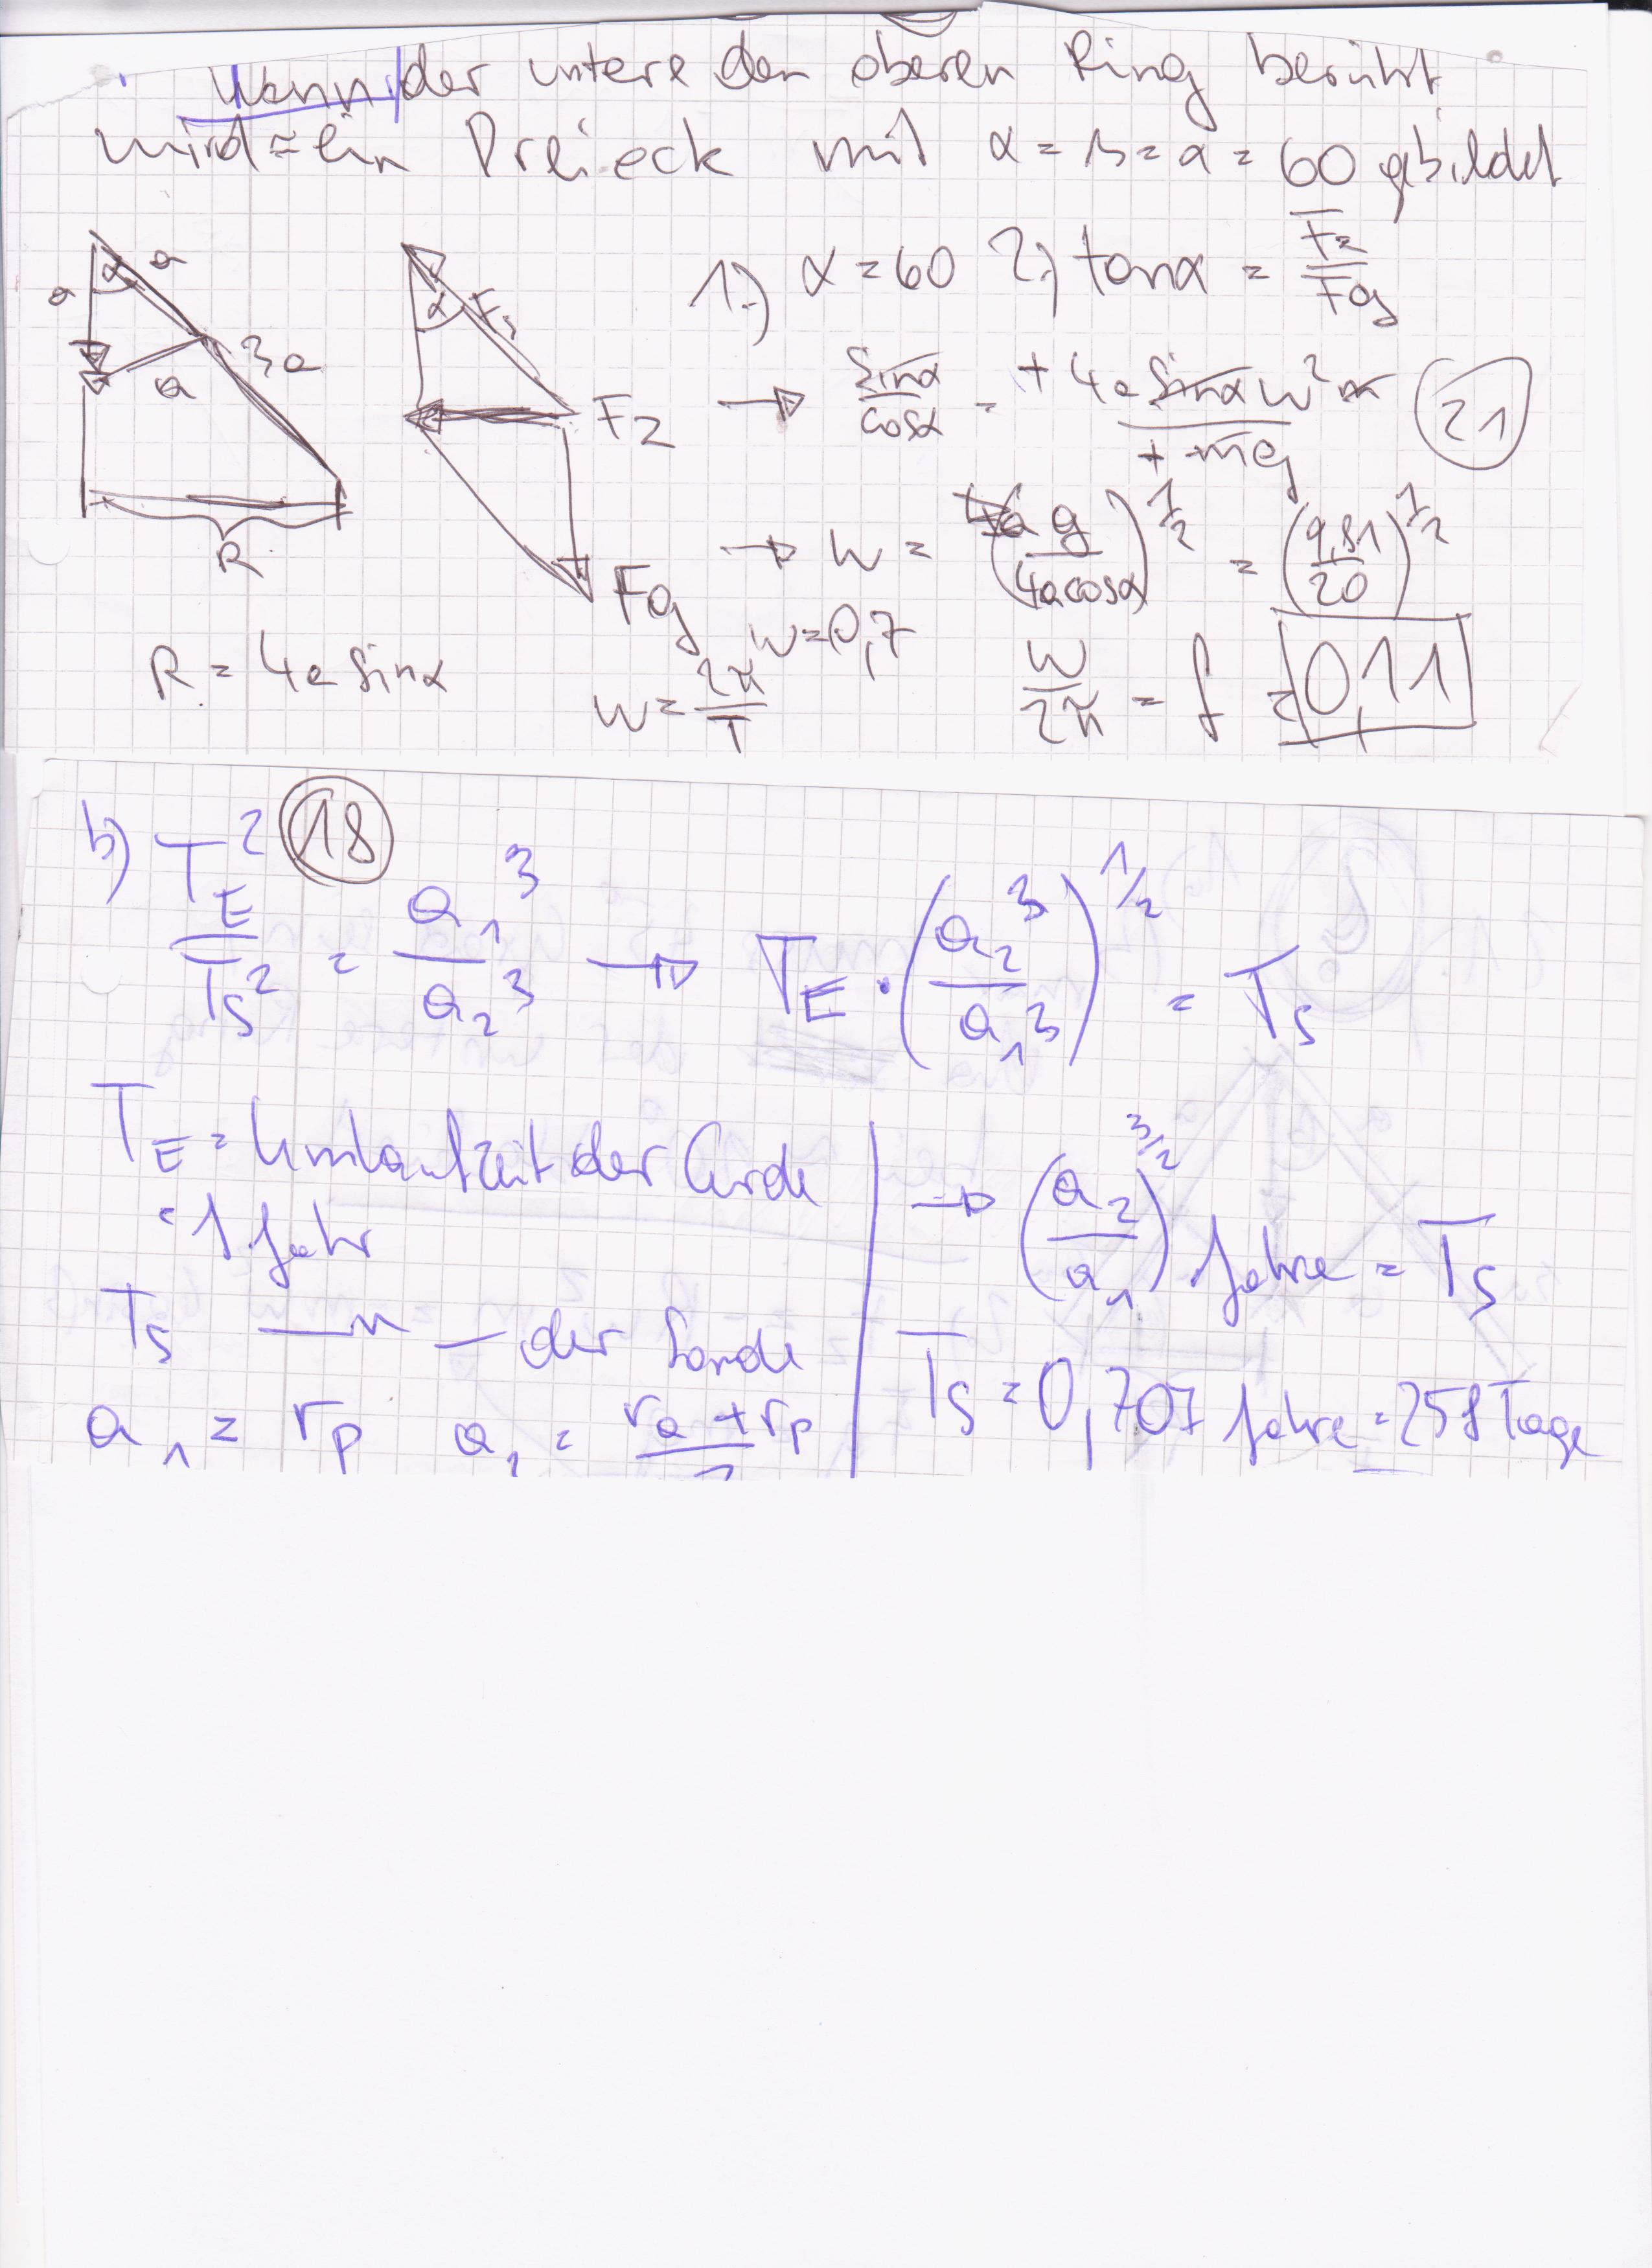 Wenn der untere den oberen Ring berührt
wird ein Dreieck mit α = β = α = 60 gebildet
a α a
3a
a
R
R = 4a sinα
α F1
F2
Fg
1.) α = 60 2.) tanα = F2/Fg
→ sinα/cosα = + 4a sinα w² m / + mg
21
→ w = (g/4a cosα)^1/2 = (9,81/20)^1/2
w = 0,7
w = 2π/T
w/2π = f = 0,11
b) 18
T_E²/T_S² = a₁³/a₂³ → T_E · (a₂³/a₁³)^1/2 = T_S
T_E = Umlaufzeit der Erde
= 1 Jahr
T_S — " — der Sonde
a₁ = r_p a₂ = r_a + r_p / 2
→ (a₂/a₁)^3/2 Jahre = T_S
T_S = 0,707 Jahre = 258 Tage